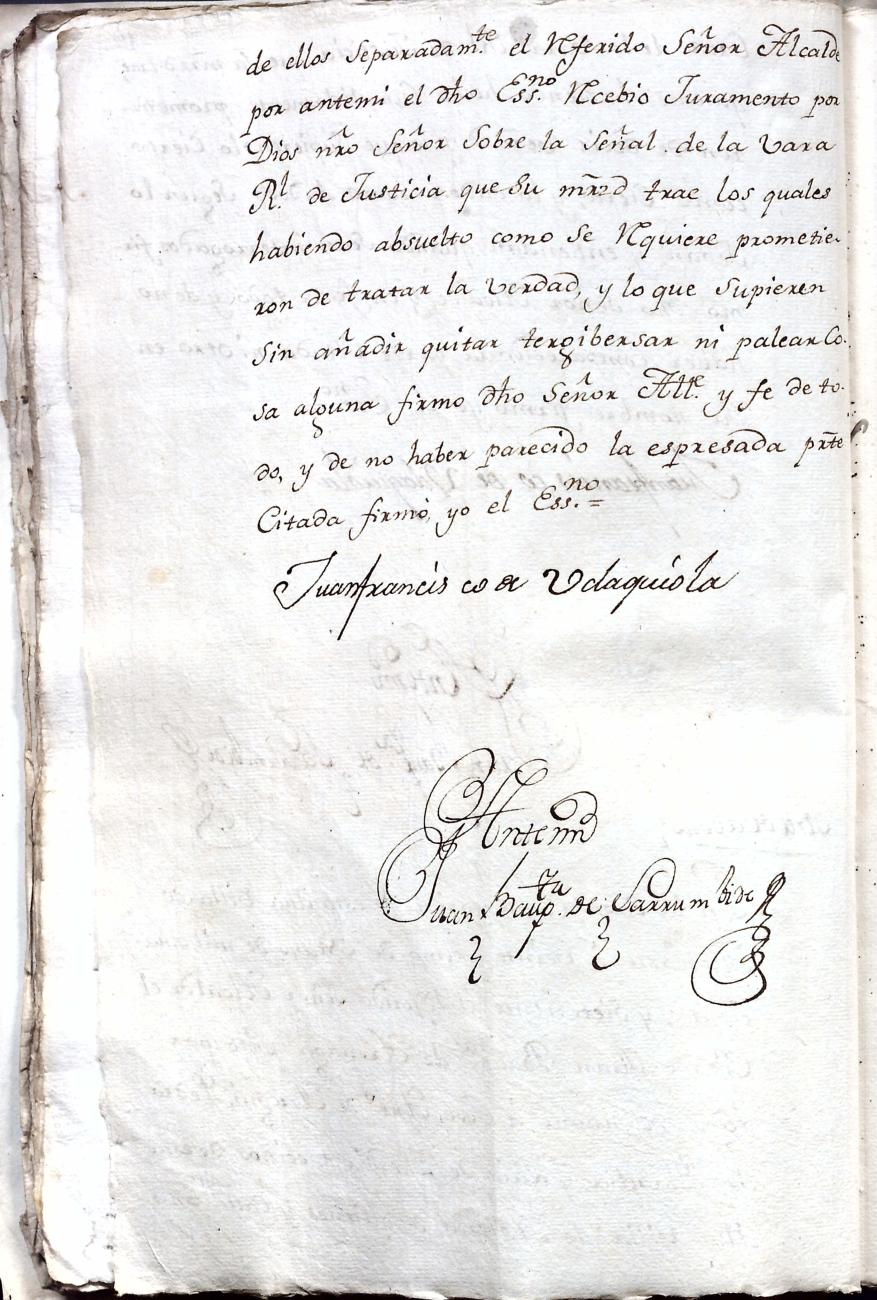 de ellos Separadam.te el Rferido Señor Alcalde
por antemi el dho Ess.no Rcebio Juramento por
Dios nro Señor Sobre la Señal de la Vara
Rl. de Justicia que Su mrzd trae los quales
habiendo absuelto como Se Rquiere prometie-
ron de tratar la verdad, y lo que Supieren
Sin añadir quitar tergibersar ni palear Co-
sa alguna firmo dho Señor Alle. y fe de to-
do, y de no haber parecido la espresada prte
Citada firmó, yo el Ess.no =
Juanfrancisco de Vdaquiola
Antemi
Juan Baup.ta de Larrumbide